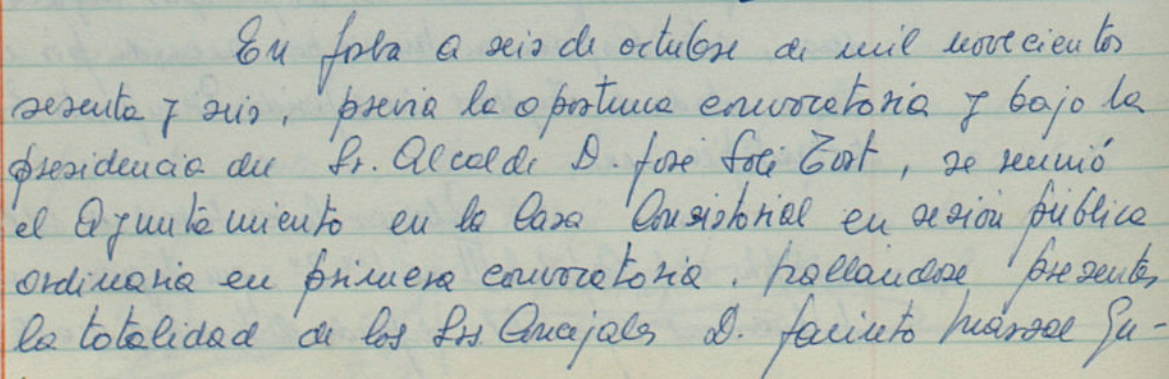 En Jorba a seis de octubre de mil novecientos
sesenta y seis, previa la oportuna convocatoria y bajo la
presidencia del Sr. Alcalde D. José Solé Tort, se reunió
el Ayuntamiento en la Casa Consistorial en sesión pública
ordinaria en primera convocatoria. Hallandose presentes
la totalidad de los Srs Concejales D. Jacinto Marsal Gu-